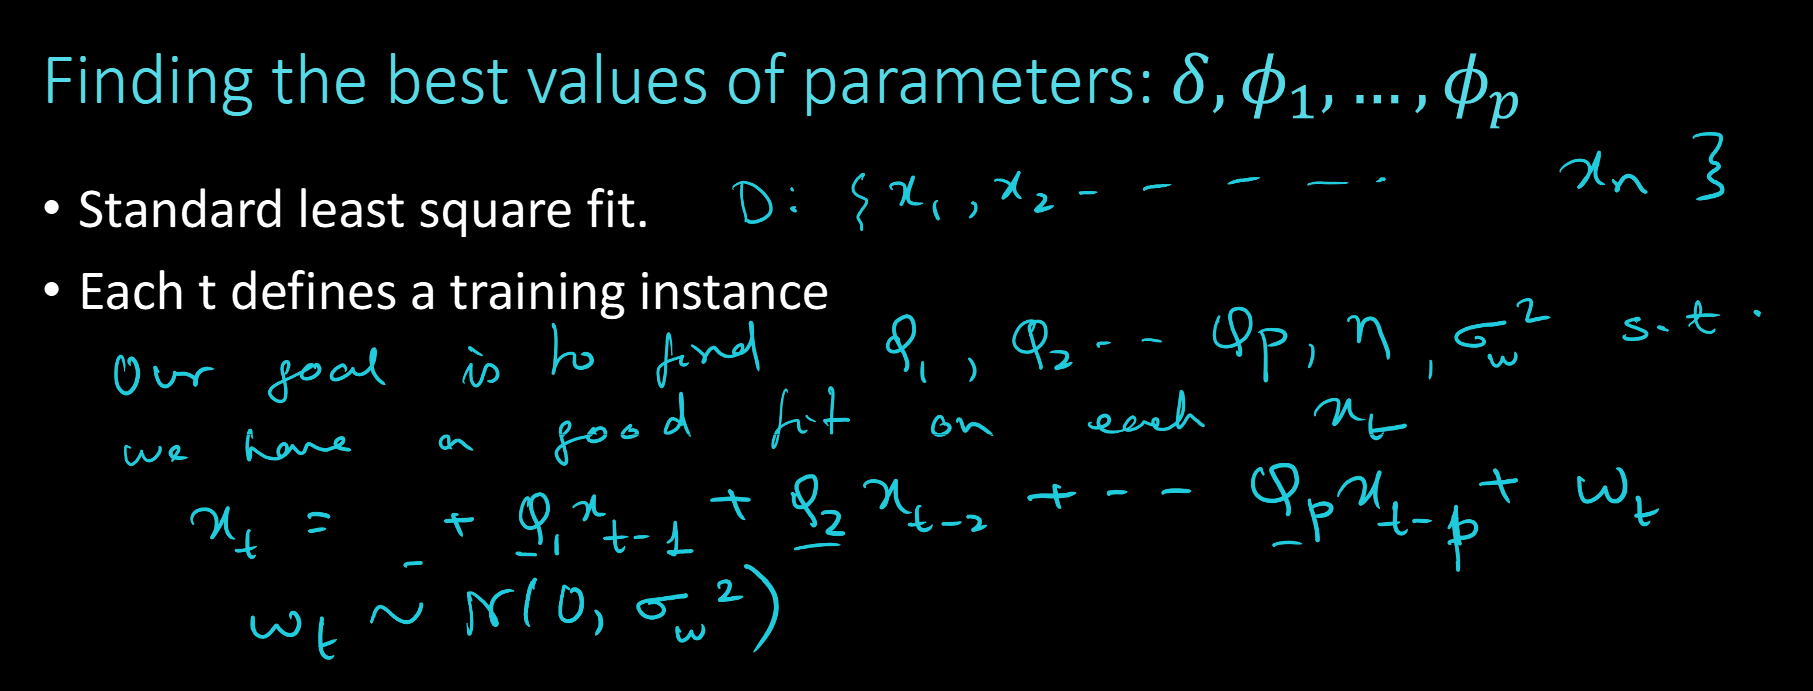 Finding the best values of parameters: δ, ϕ₁, ... , ϕₚ
• Standard least square fit. D: {x₁, x₂ - - - - . xₙ}
• Each t defines a training instance
Our goal is to find φ₁, φ₂ - - φₚ, η, σ_w² s.t.
we have a good fit on each xₜ
xₜ = _ + φ₁xₜ₋₁ + φ₂xₜ₋₂ + - - φₚxₜ₋ₚ + wₜ
wₜ ~ N(0, σ_w²)